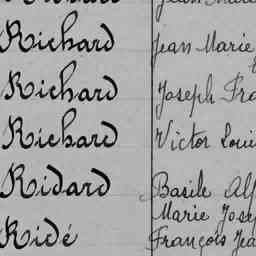 Richard Jean Marie
Richard Joseph Fra
Richard Victor Loui
Ridard Basile Alf
Marie Josep
Ridé François Jea